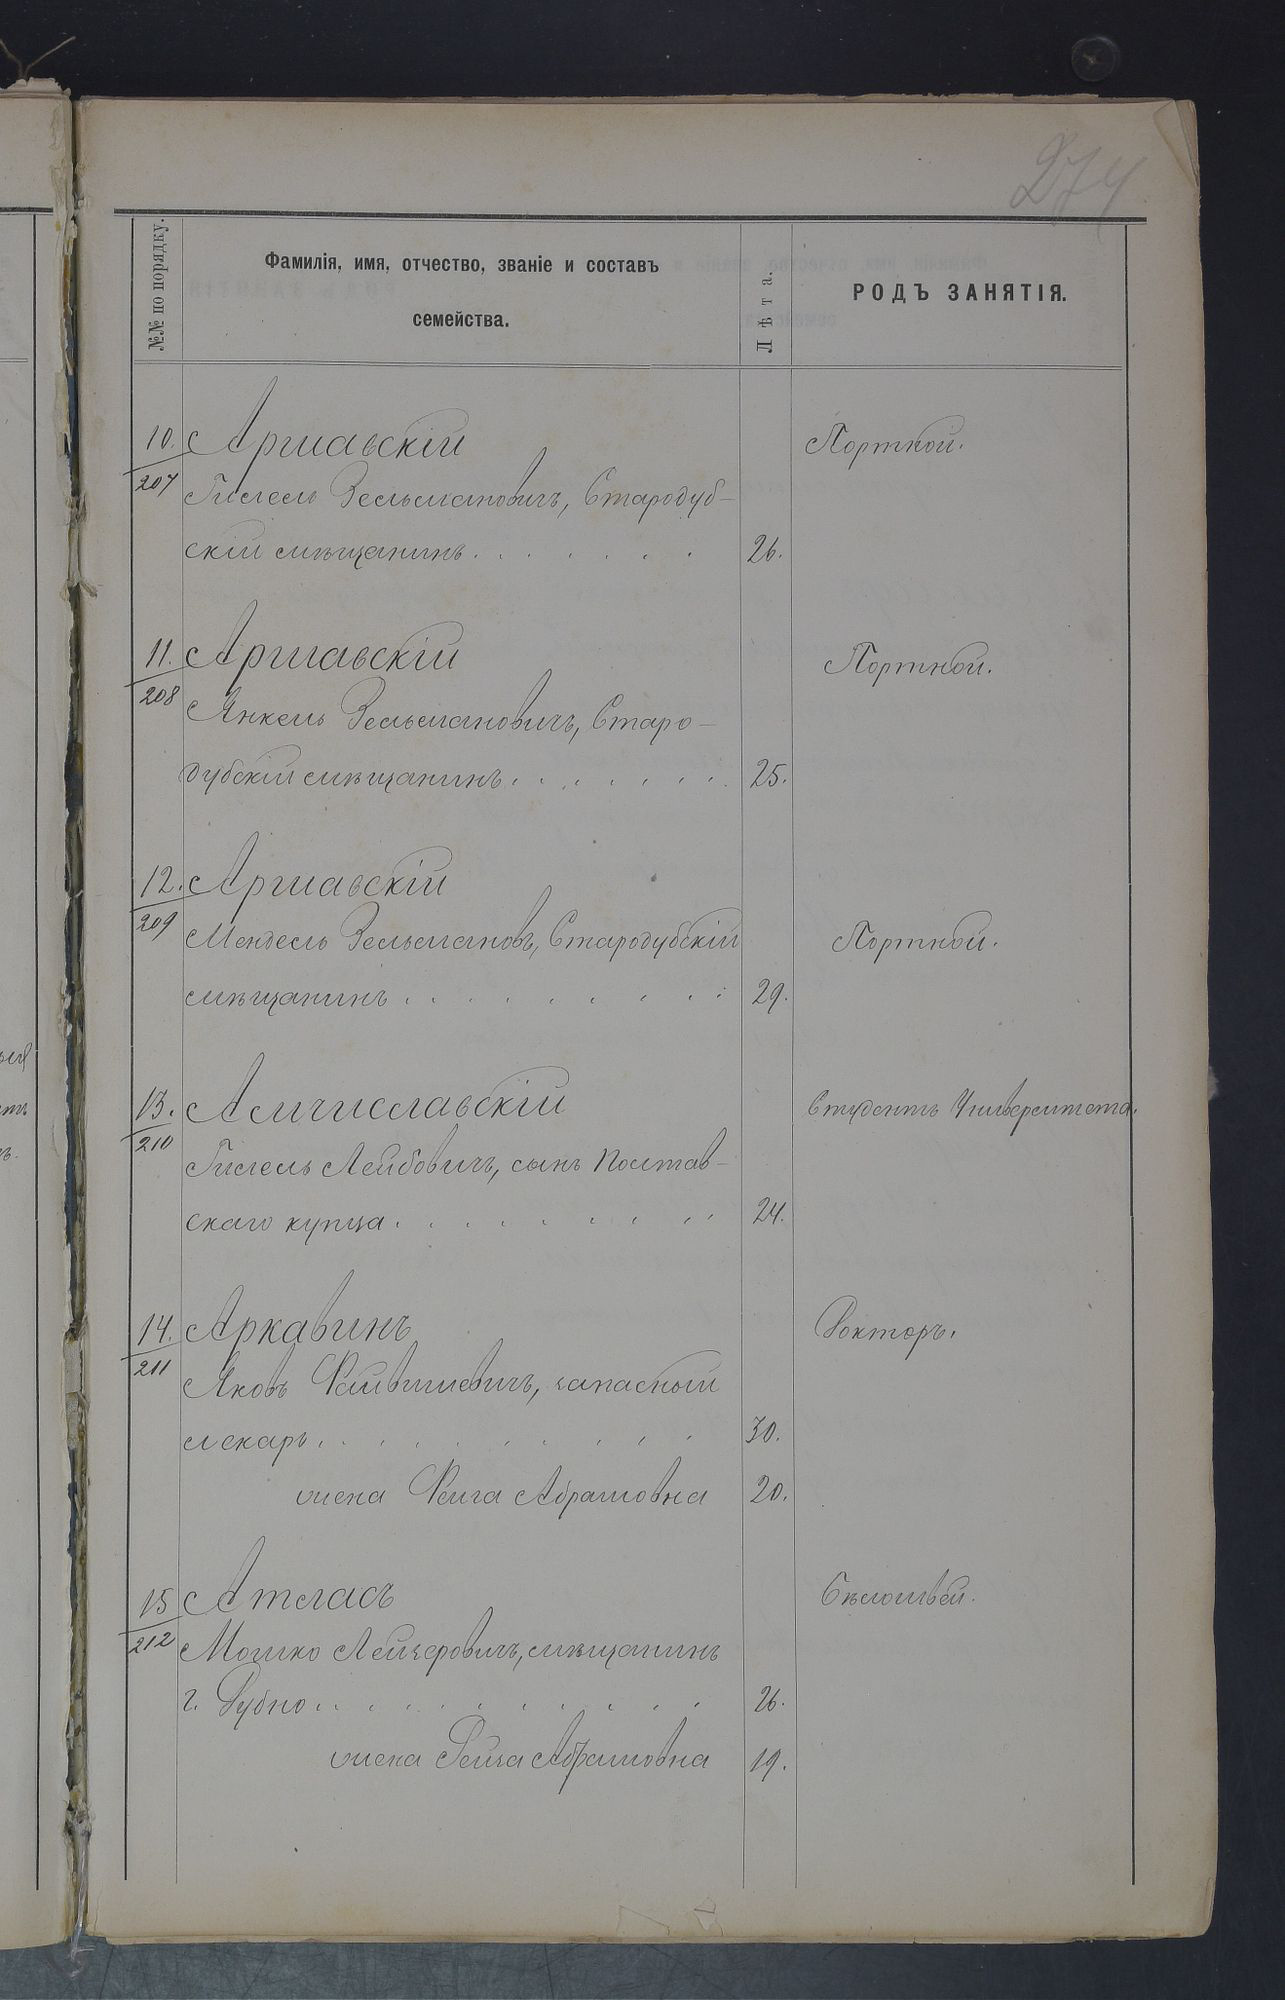 274
№№ по порядку.
Фамилія, имя, отчество, званіе и составъ
семейства.
Лѣта.
РОДЪ ЗАНЯТІЯ.
10. Аршавскій Портной.
207 Гилель Зельмановичъ, Стародуб-
скій мѣщанинъ 26.
11. Аршавскій Портной.
208 Янкель Зельмановичъ, Старо-
дубскій мѣщанинъ 25.
12. Аршавскій
209 Мендель Зельмановъ, Стародубскій Портной.
мѣщанинъ 29.
13. Амчиславскій Студентъ Университета.
210 Гилель Лейбовичъ, сынъ Полтав-
скаго купца 24.
14. Аркавинъ Докторъ.
211 Яковъ Файвишевичъ, запасный
лекарь 30.
жена Фейга Абрамовна 20.
15 Атласъ Бѣлошвей.
212 Мошко Лейзеровичъ, мѣщанинъ
г. Дубно 26.
жена Рейза Абрамовна 19.